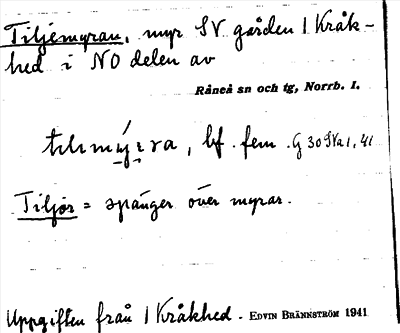 Tiljemyran, myr SV gården 1 Kråk-
hed i NO delen av
Råneå sn och tg, Norrb. l.
bf. fem.
Tiljor = spänger över myrar.
Uppgiften från 1 Kråkhed. EDVIN BRÄNNSTRÖM 1941